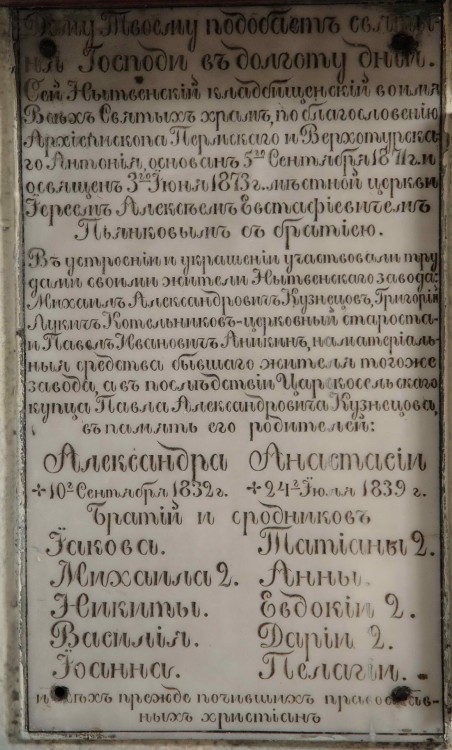 Дому Твоему подобаетъ святы-
ня Господи въ долготу дній.
Сей Нытвенскій кладбищенскій во имя
Всѣхъ Святыхъ храмъ, по благословенію
Архіепископа Пермскаго и Верхотурска-
го Антонія, основанъ 5го Сентября 1871 г. и
освященъ 3го Іюня 1873 г. мѣстной церкви
Іереемъ Алексѣемъ Евстафіевичемъ
Пьянковымъ съ братіею.
Въ устроеніи и украшеніи участвовали тру-
дами своими жители Нытвенскаго завода:
Михаилъ Александровичъ Кузнецовъ, Григорій
Лукичъ Котельниковъ-церковный староста
и Павелъ Ивановичъ Аникинъ, на матеріаль-
ныя средства бывшаго жителя тогоже
завода, а въ послѣдствіи Царскосельскаго
купца Павла Александровича Кузнецова,
въ память его родителей:
Александра Анастасіи
+10го Сентября 1832 г. +24го Іюля 1839 г.
Братій и сродниковъ
Іакова. Татіаны 2.
Михаила 2. Анны.
Никиты. Евдокіи 2.
Василія. Даріи 2.
Іоанна. Пелагіи.
и всѣхъ прежде почившихъ православ-
ныхъ христіанъ